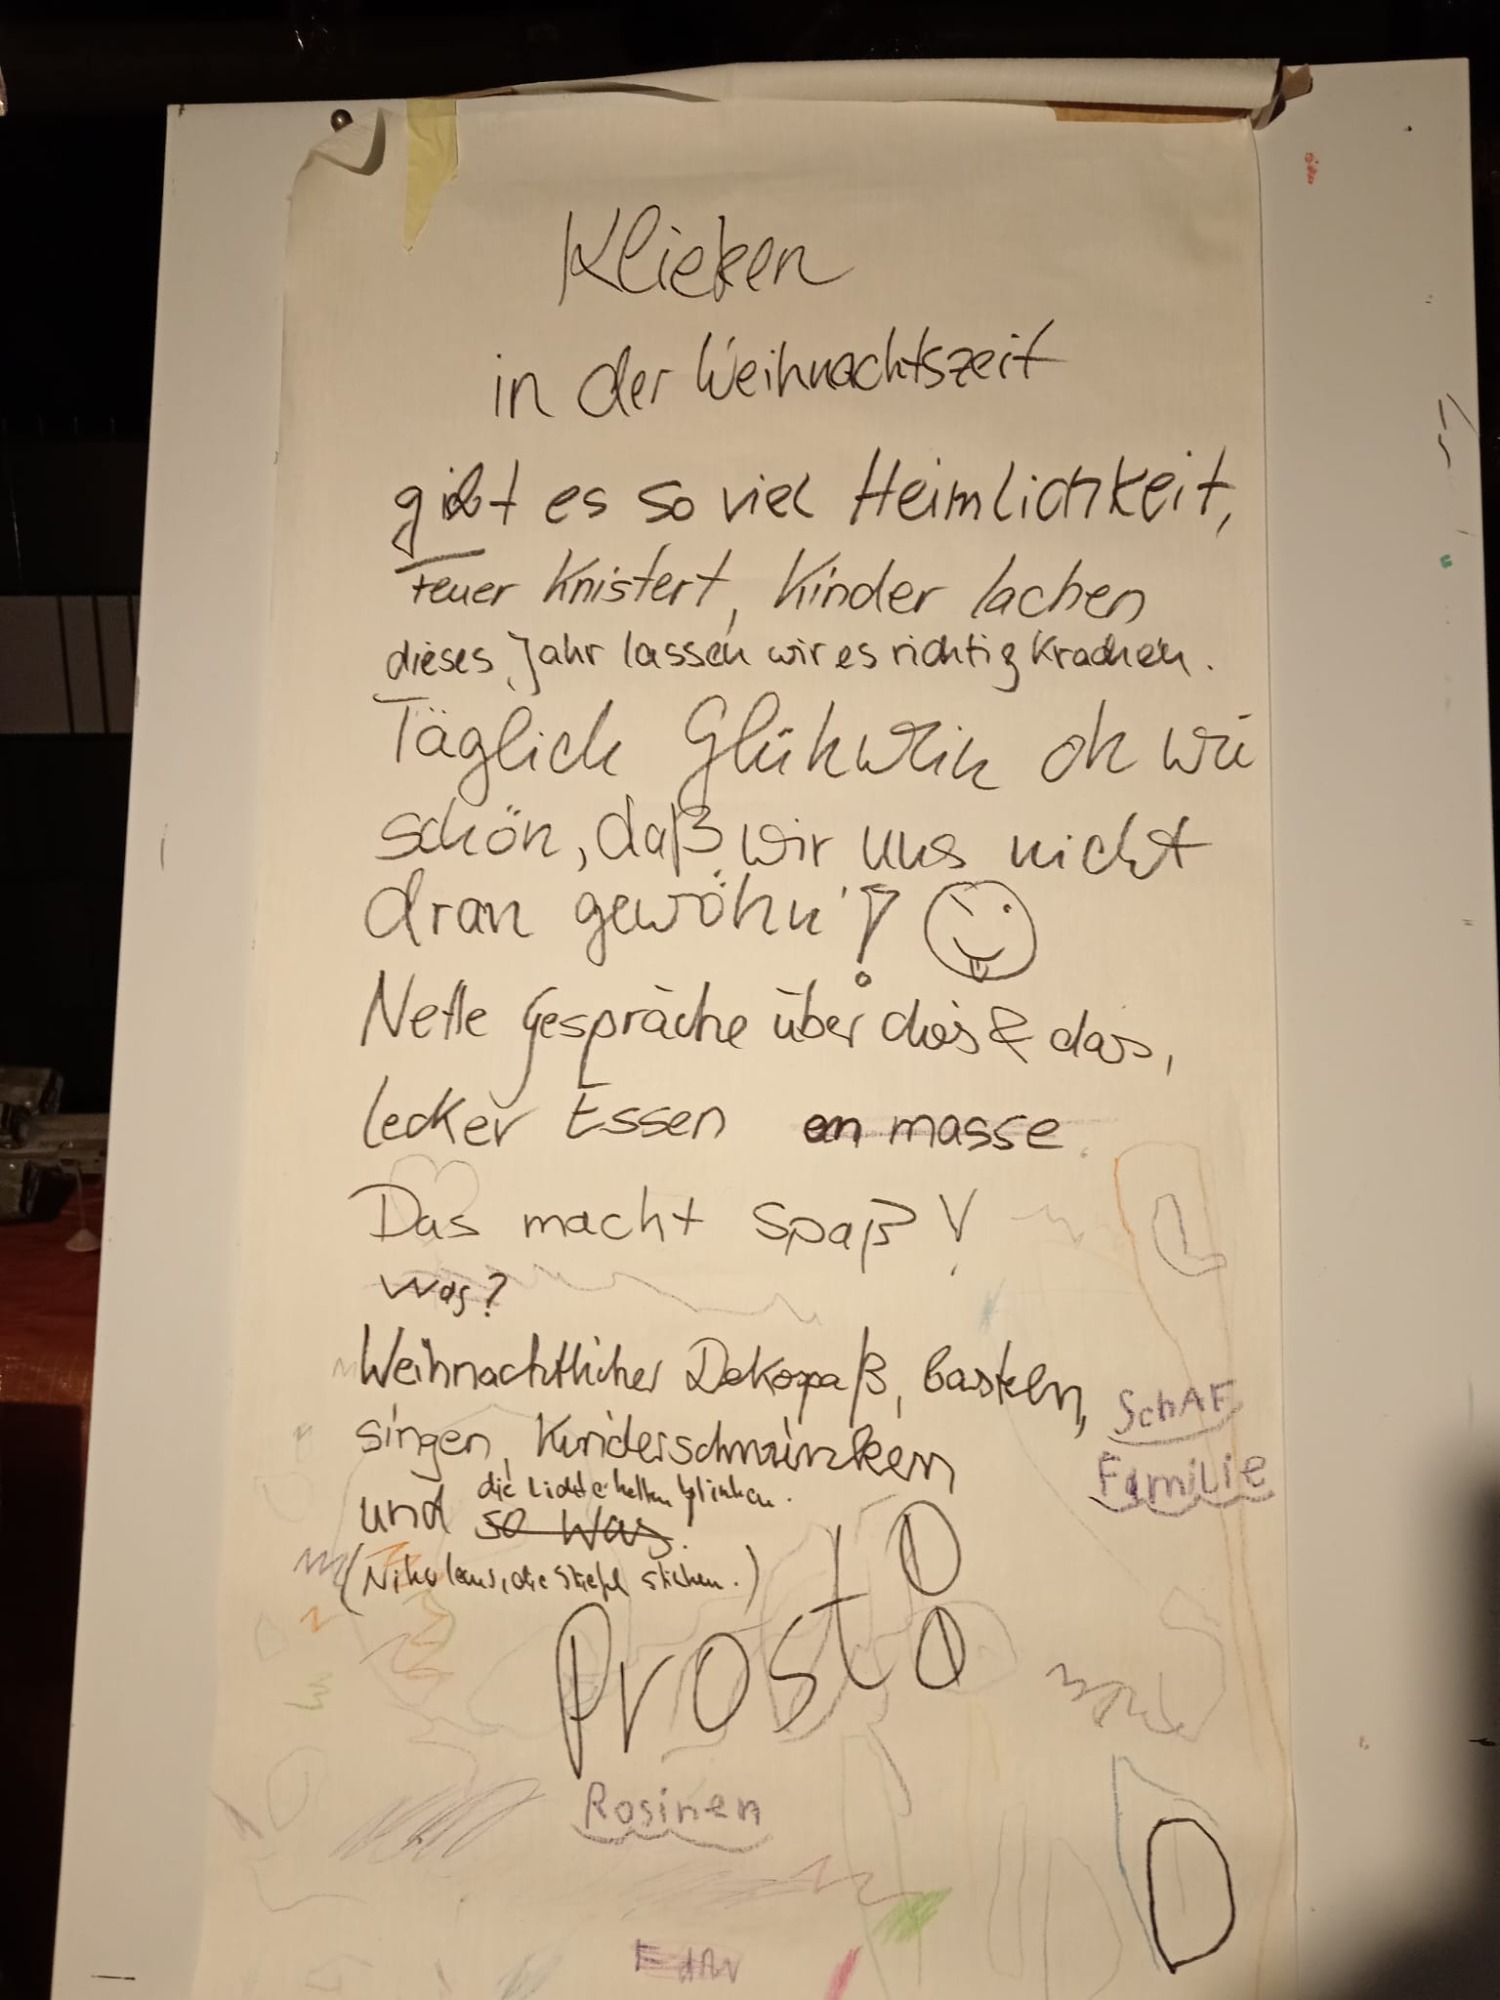 Klieken
in der Weihnachtszeit
gibt es so viel Heimlichkeit,
Feuer Knistert, Kinder lachen
dieses Jahr lassen wir es richtig Krachen.
Täglich Glühwein oh wie
schön, daß wir uns nicht
dran gewöhn'!
Nette Gespräche über dies & das,
lecker Essen en masse.
Das macht Spaß!
Was?
Weihnachtlicher Dekospaß, basteln,
singen, Kinderschminken
SchAF
Familie
die Lichterketten blinken.
und so was.
(Nikolaus, die Stiefel stinken.)
Prost!!
Rosinen